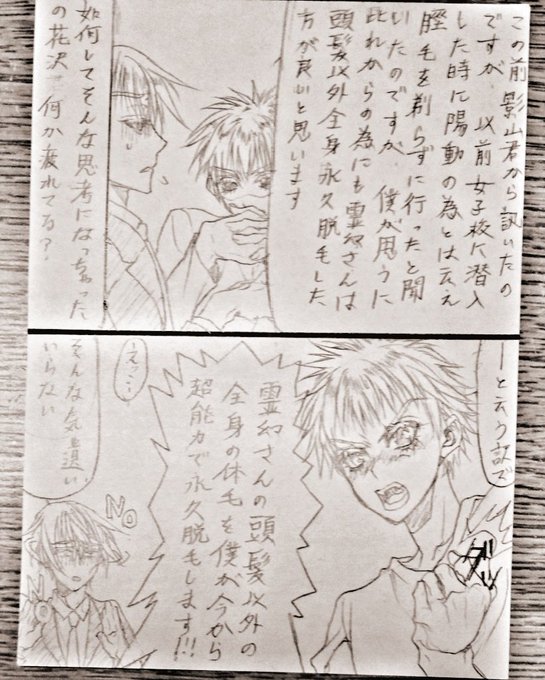 この前影山君から訊いたの
ですが、以前女子校に潜入
した時に陽動の為とは云え
脛毛を剃らずに行ったと聞
いたのですが、僕が思うに
此れからの為にも霊幻さんは
頭髪以外全身永久脱毛した
方が良いと思います
如何してそんな思考になっちゃった
の花沢
何か疲れてる?
ーと云う訳で
ガッ
霊幻さんの頭髪以外の
全身の体毛を僕が今から
超能力で永久脱毛します!!!
えっ…
そんな気遣い
いらない
NO
NO